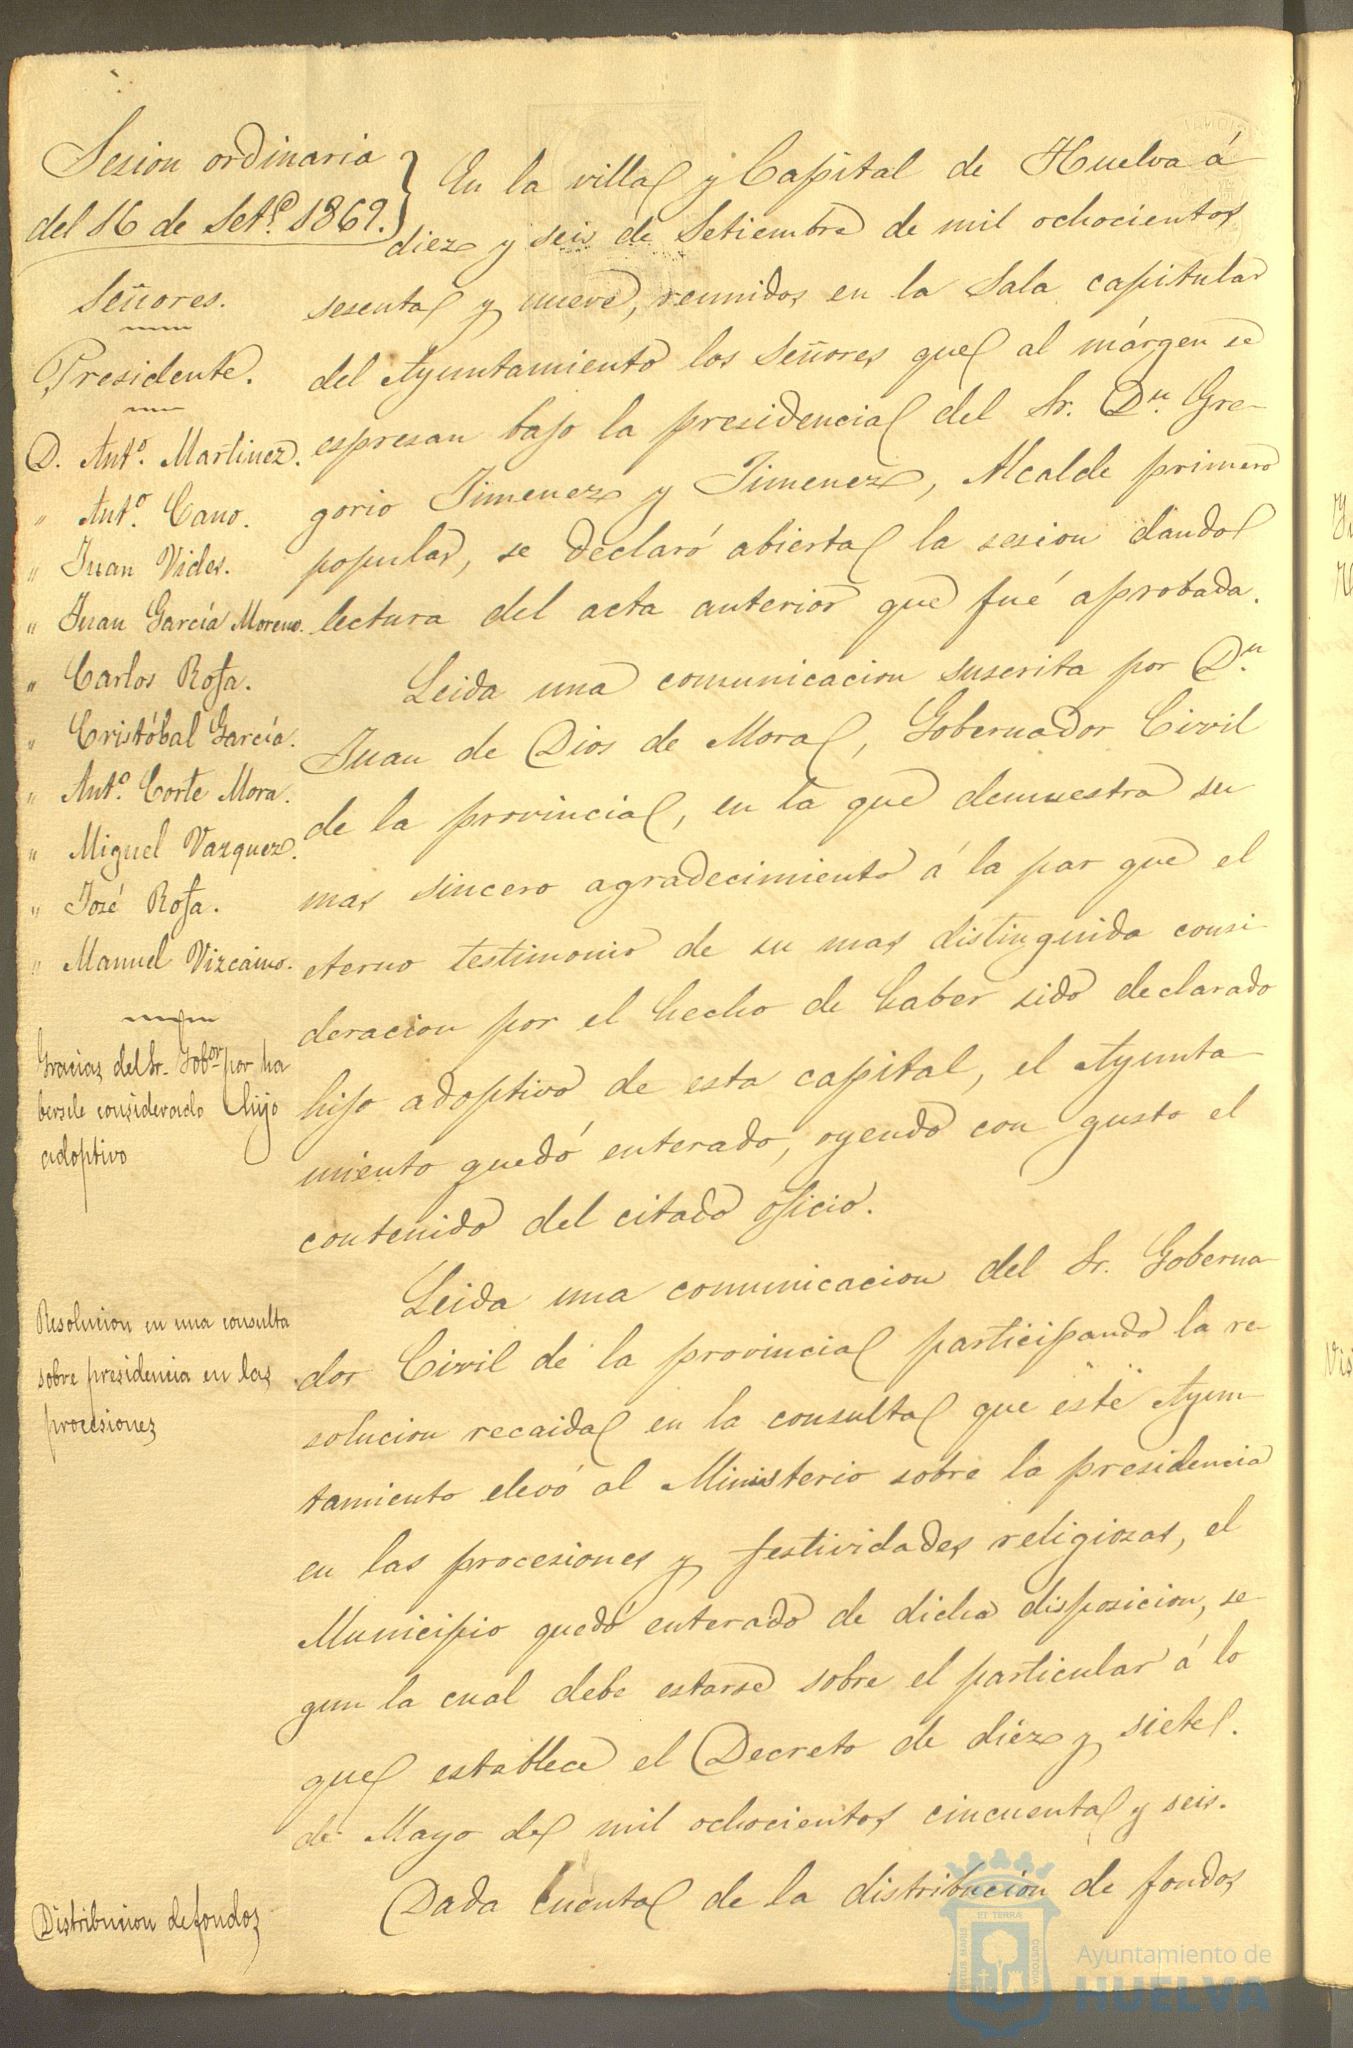 Sesion ordinaria
del 16 de Set.e 1869.
Señores.
Presidente.
D. Ant.o Martinez.
" Ant.o Cano.
" Juan Vides.
" Juan García Moreno.
" Carlos Rofa.
" Cristóbal García.
" Ant.o Corte Mora.
" Miguel Vazquez.
" José Rofa.
" Manuel Vizcaino.
Gracias del Sr. Gobor. por ha
bersele considerado hijo
adoptivo
Resolucion en una consulta
sobre presidencia en las
procesiones
Distribucion de fondos
En la villa y Capital de Huelva á
diez y seis de Setiembre de mil ochocientos
sesenta y nueve, reunidos en la Sala capitular
del Ayuntamiento los Señores que al márgen se
espresan bajo la presidencia del Sr. Dn. Gre-
gorio Jimenez y Jimenez, Alcalde primero
popular, se declaró abierta la sesion dando
lectura del acta anterior que fué aprobada.
Leida una comunicacion suscrita por Dn.
Juan de Dios de Mora, Gobernador Civil
de la provincia, en la que demuestra su
mas sincero agradecimiento á la par que el
eterno testimonio de su mas distinguida consi-
deracion por el hecho de haber sido declarado
hijo adoptivo de esta capital, el Ayunta-
miento quedó enterado, oyendo con gusto el
contenido del citado oficio.
Leida una comunicacion del Sr. Goberna-
dor Civil de la provincia participando la re-
solucion recaida en la consulta que este Ayun-
tamiento elevó al Ministerio sobre la presidencia
en las procesiones y festividades religiosas, el
Municipio quedó enterado de dicha disposicion, se-
gun la cual debe estarse sobre el particular á lo
que establece el Decreto de diez y siete
de Mayo de mil ochocientos cincuenta y seis.
Dada cuenta de la distribución de fondos
ET TERRÆ
PORTUS MARIS
CUSTODIA
Ayuntamiento de
HUELVA